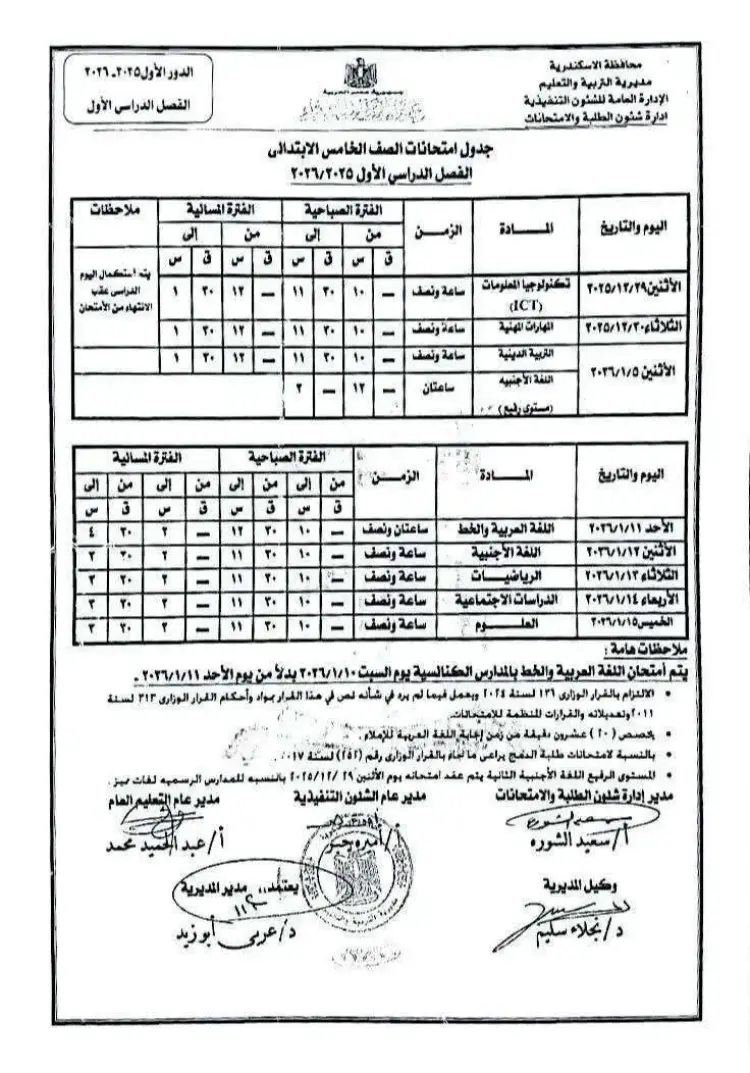 محافظة الاسكندرية
مديرية التربية والتعليم
الإدارة العامة للشئون التنفيذية
ادارة شئون الطلبة والامتحانات
الدور الأول ٢٠٢٥ـ ٢٠٢٦
الفصل الدراسي الأول
جدول امتحانات الصف الخامس الابتدائى
الفصل الدراسي الأول ٢٠٢٦/٢٠٢٥
اليوم والتاريخ المــادة الزمــن الفترة الصباحية الفترة المسائية ملاحظات
من إلى من إلى
ق س ق س ق س ق س
الأثنين ٢٠٢٥/١٢/٢٩ تكنولوجيا المعلومات (ICT) ساعة ونصف — ١٠ ٣٠ ١١ — ١٢ ٣٠ ١ يتم أستكمال اليوم الدراسى عقب الانتهاء من الأمتحان
الثلاثاء ٢٠٢٥/١٢/٣٠ المهارات المهنية ساعة ونصف — ١٠ ٣٠ ١١ — ١٢ ٣٠ ١
الأثنين ٢٠٢٦/١/٥ التربية الدينية ساعة ونصف — ١٠ ٣٠ ١١ — ١٢ ٣٠ ١
اللغة الأجنبيه (مستوى رفيع) ساعتان — ١٢ — ٢
اليوم والتاريخ المــادة الزمــن الفترة الصباحية الفترة المسائية
من إلى من إلى من إلى من إلى
ق س ق س ق س
الأحد ٢٠٢٦/١/١١ اللغة العربية والخط ساعتان ونصف — ١٠ ٣٠ ١٢ — ٢ ٣٠ ٤
الأثنين ٢٠٢٦/١/١٢ اللغة الأجنبية ساعة ونصف — ١٠ ٣٠ ١١ — ٢ ٣٠ ٣
الثلاثاء ٢٠٢٦/١/١٣ الرياضيـــات ساعة ونصف — ١٠ ٣٠ ١١ — ٢ ٣٠ ٣
الأربعاء ٢٠٢٦/١/١٤ الدراسات الاجتماعية ساعة ونصف — ١٠ ٣٠ ١١ — ٢ ٣٠ ٣
الخميس ٢٠٢٦/١/١٥ العلـــوم ساعة ونصف — ١٠ ٣٠ ١١ — ٢ ٣٠ ٣
ملاحظات هامة :
يتم أمتحان اللغة العربية والخط بالمدارس الكنائسية يوم السبت ٢٠٢٦/١/١٠ بدلاً من يوم الأحد ٢٠٢٦/١/١١ .
• الالتزام بالقرار الوزارى ١٣٦ لسنة ٢٠٢٤ ويعمل فيما لم يرد في شأنه نص في هذا القرار بمواد وأحكام القرار الوزارى ٣١٣ لسنة
٢٠١١ وتعديلاته والقرارات المنظمة للامتحانات.
• يخصص (٢٠) عشرون دقيقة من زمن إجابة اللغة العربية للإملاء .
• بالنسبة لامتحانات طلبة الدمج يراعى ما جاء بالقرار الوزارى رقم (٢٥٢) لسنة ٢٠١٧.
• المستوى الرفيع اللغة الأجنبية الثانية يتم عقد امتحانه يوم الأثنين ٢٩ /١٢ /٢٠٢٥ بالنسبه للمدارس الرسميه لغات
مدير إدارة شئون الطلبة والامتحانات مدير عام الشئون التنفيذية مدير عام التعليم العام
أ/ سعيد الشوره أ/ أميره جبر أ/ عبد الحميد محمد
وكيل المديرية يعتمد،، مدير المديرية
د/ نجلاء سليم د/ عربى أبوزيد